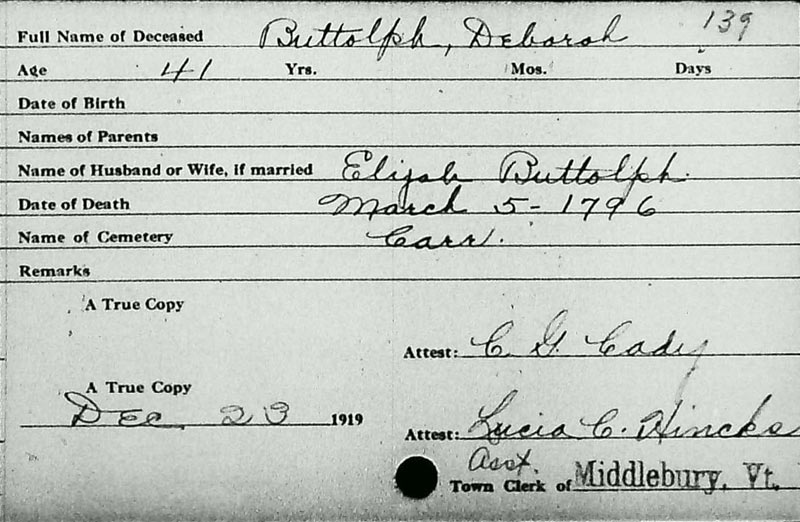 139
Full Name of Deceased Buttolph, Deborah
Age 41 Yrs. Mos. Days
Date of Birth
Names of Parents
Name of Husband or Wife, if married Elijah Buttolph.
Date of Death March 5-1796
Name of Cemetery Carr.
Remarks
A True Copy
Attest: C. G. Cady
A True Copy
Dec. 23 1919
Attest: Lucia C. Hincks
Asst.
Town Clerk of Middlebury, Vt.